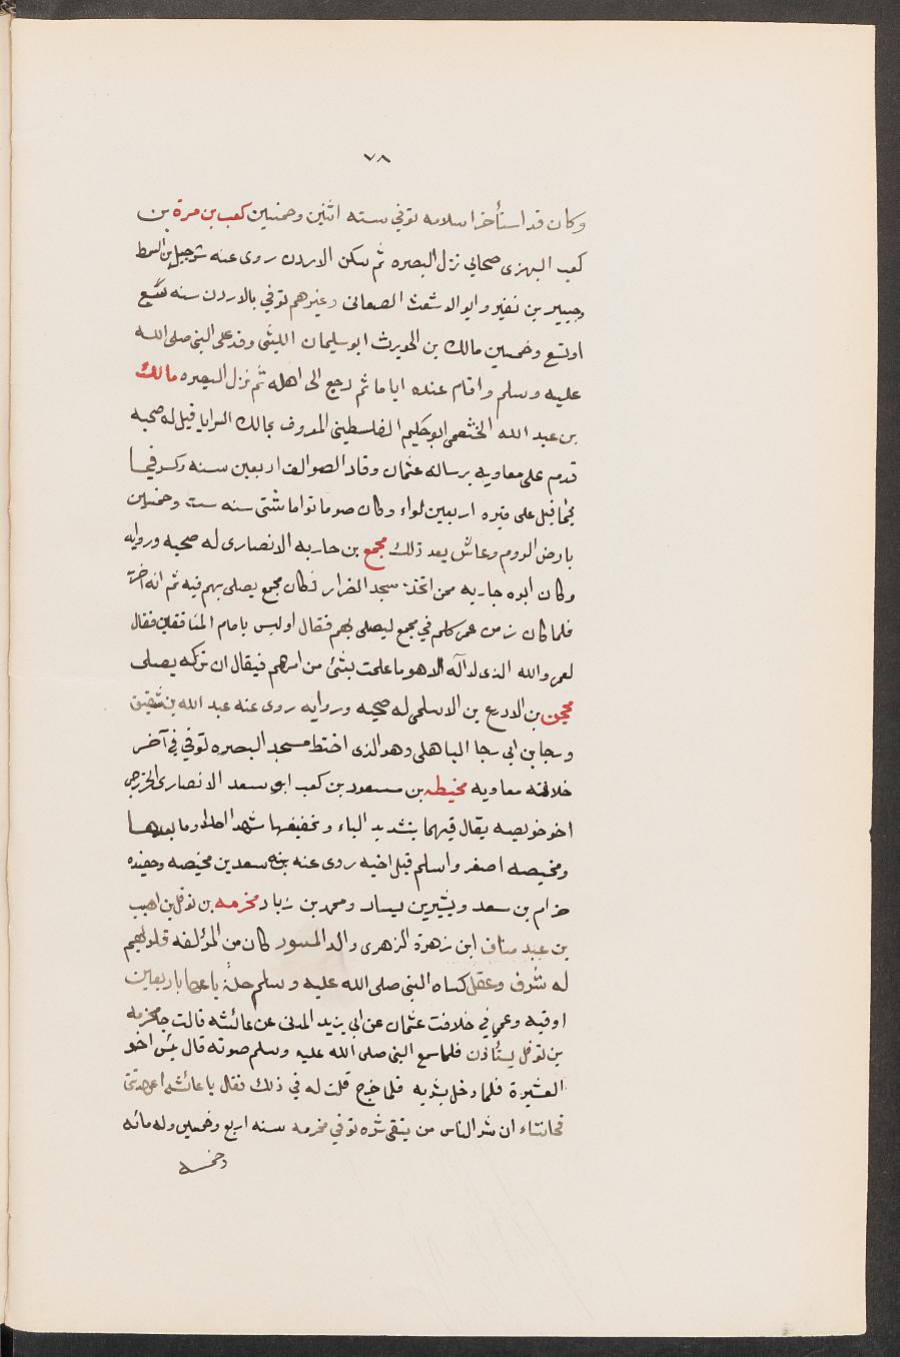 ٧٨
وكان قد استأخر اسلامه توفي سنه اثنين وخمسين كعب بن مرة بن
كعب البهزى صحابي نزل البصره ثم سكن الاردن روى عنه شرحبيل بن السمط
وجبير بن نفير وابو الاشعث الصنعانى وغيرهم توفي بالاردن سنه سبع
اوتسع وخمسين مالك بن الحويرث ابو سليمان الليثى وفد على النبى صلى الله
عليه وسلم واقام عنده اياما ثم رجع الى اهله ثم نزل البصره مالك
بن عبد الله الخثعمى ابو حكيم الفلسطينى المعروف بمالك السرايا قيل له صحبه
قدم على معاويه برساله عثمان وقاد الصوائف اربعين سنه وكسر فيما
قيل على قبره اربعين لواء وكان صوما قواما شتى سنه ست وخمسين
بارض الروم وعاش بعد ذلك مجمع بن جاريه الانصارى له صحبه وروايه
وكان ابوه جاريه ممن اتخذ مسجد الضرار فكان مجمع يصلى بهم فيه ثم انه
فلما كان زمن عمر كلم في مجمع ليصلى بهم فقال اوليس بامام المنافقين فقال
لعمر والله الذى لا آله الا هو ما علمت بشئ من امرهم فيقال ان تركه يصلى
محجن بن الادرع بن الاسلمى له صحبه وروايه روى عنه عبد الله بن شقيق
ورجا بن ابى رجا الباهلى وهو الذى اختط مسجد البصره توفي في آخر
خلافته معاويه بن مسعود بن كعب ابو سعد الانصارى الخزرجى
اخو حويصه يقال فيهما بتشديد الياء وتخفيفها شهد احدا وما بعدها
ومحيصه اصغر واسلم قبل اخيه روى عنه بنه سعد بن محيصه وحفيده
حزام بن سعد وبشير بن يسار ومحمد بن زياد مخرمه بن نوفل بن اهيب
بن عبد مناف ابن زهرة الزهرى والد المسور كان من المؤلفه قلوبهم
له شرف وعقل كساه النبى صلى الله عليه وسلم حلة باعها باربعين
اوقيه وعمي في خلافت عثمان عن ابى يزيد المدنى عن عائشه قالت جا مخرمه
بن نوفل يستأذن فلما سمع النبى صلى الله عليه وسلم صوته قال بئس اخو
العشيرة فلما دخل بش به فلما خرج قلت له في ذلك فقال يا عائشه اعهدتنى
فحاشاء ان شر الناس من يتقى شره توفي مخرمه سنه اربع وخمسين وله مائه
وخمسه